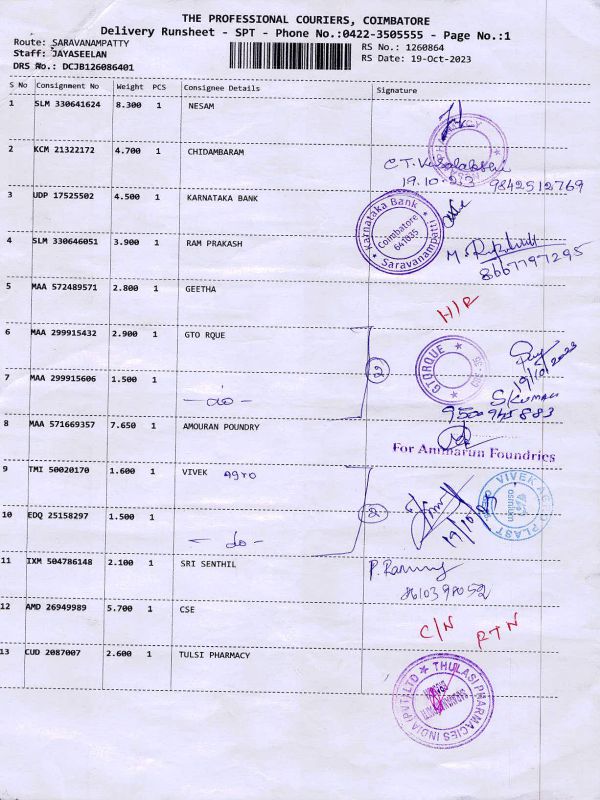 THE PROFESSIONAL COURIERS, COIMBATORE
Delivery Runsheet - SPT - Phone No.:0422-3505555 - Page No.:1
Route: SARAVANAMPATTY
Staff: JAYASEELAN
DRS No.: DCJB126086401
RS No.: 1260864
RS Date: 19-Oct-2023
S No Consignment No Weight PCS Consignee Details Signature
1 SLM 330641624 8.300 1 NESAM
2 KCM 21322172 4.700 1 CHIDAMBARAM
19.10.23 9842512769
3 UDP 17525502 4.500 1 KARNATAKA BANK
Karnataka Bank
Coimbatore
641035
Saravanampatti
4 SLM 330646051 3.900 1 RAM PRAKASH
8667797295
5 MAA 572489571 2.800 1 GEETHA
H/R
6 MAA 299915432 2.900 1 GTO RQUE
2
GTORQUE
19/10/2023
7 MAA 299915606 1.500 1
- do -
S Kumar
9500945883
8 MAA 571669357 7.650 1 AMOURAN POUNDRY
For Ammarun Foundries
9 TMI 50020170 1.600 1 VIVEK Agro
VIVEK AGRO PLAST
19/10/23
10 EDQ 25158297 1.500 1
- do -
2
11 IXM 504786148 2.100 1 SRI SENTHIL
12 AMD 26949989 5.700 1 CSE
C/N RTN
13 CUD 2087007 2.600 1 TULSI PHARMACY
THULASI PHARMACIES INDIA (PVT) LTD